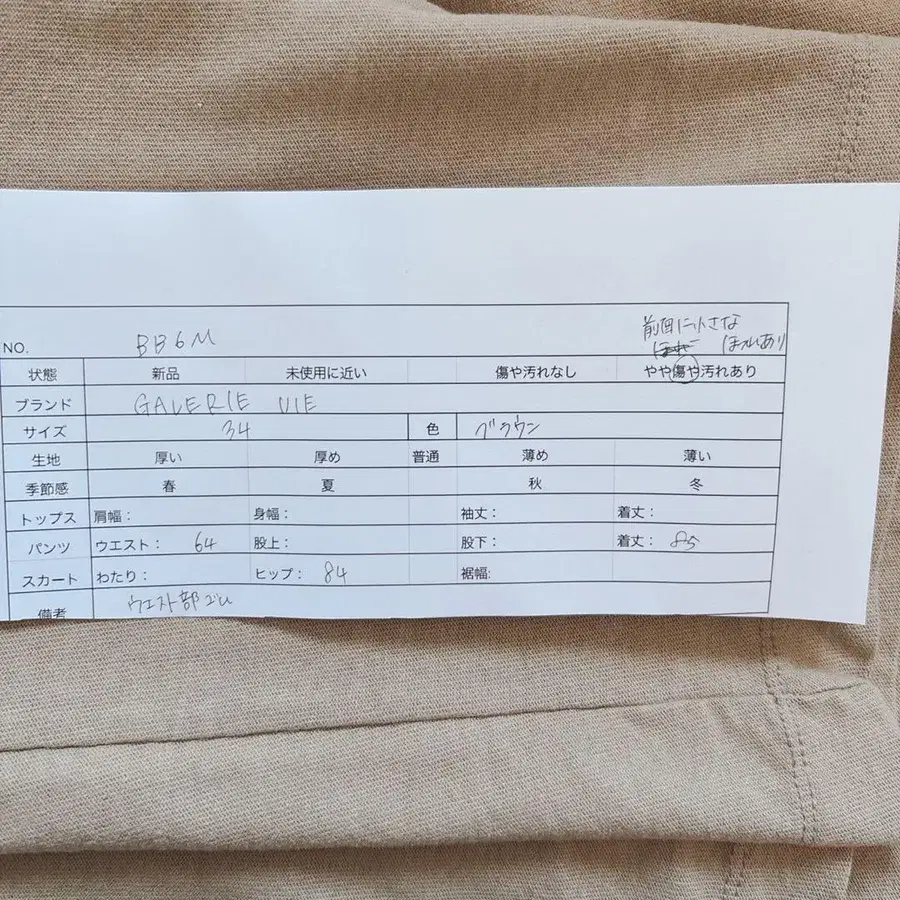 前面に小さな
NO. BB6M ほつれあり
状態 新品 未使用に近い 傷や汚れなし やや傷や汚れあり
ブランド GALERIE VIE
サイズ 34 色 ブラウン
生地 厚い 厚め 普通 薄め 薄い
季節感 春 夏 秋 冬
トップス 肩幅： 身幅： 袖丈： 着丈：
パンツ ウエスト： 64 股上： 股下： 着丈： 85
スカート わたり： ヒップ： 84 裾幅:
備考 ウエスト部ゴム